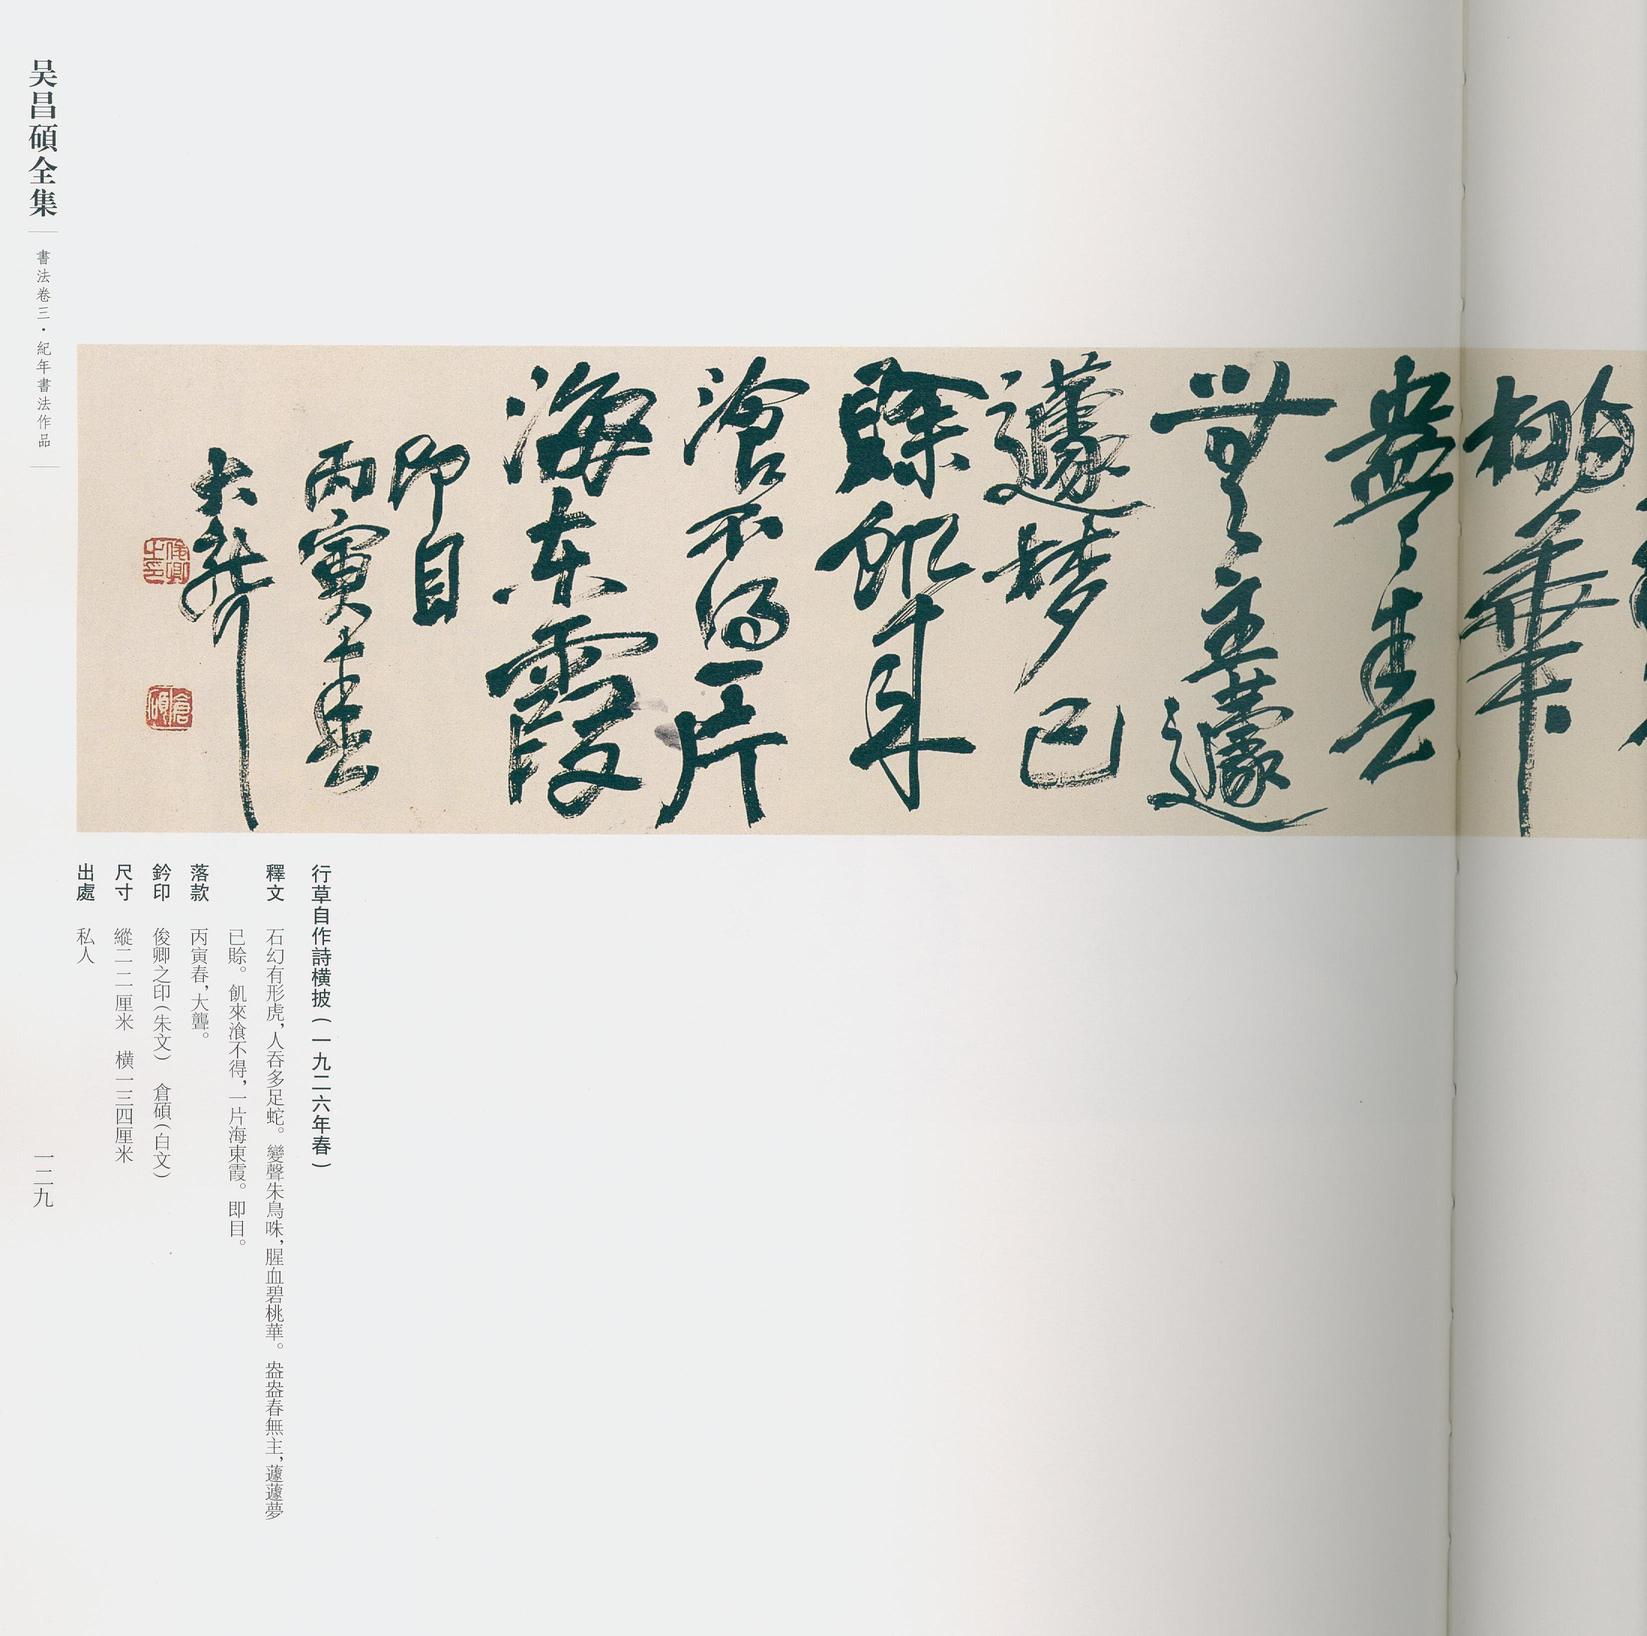 桃華
盎〻春
無主蘧
蘧夢已
賒飢來
湌不得一片
海東霞
即目
丙寅春
大聾
俊卿之印
倉碩
行草自作詩橫披(一九二六年春)
釋文 石幻有形虎,人吞多足蛇。變聲朱鳥咮,腥血碧桃華。盎盎春無主,蘧蘧夢
已賒。飢來湌不得,一片海東霞。即目。
落款 丙寅春,大聾。
鈐印 俊卿之印(朱文) 倉碩(白文)
尺寸 縱二二厘米 橫一三四厘米
出處 私人
吴昌碩全集
書法卷三·紀年書法作品
一二九